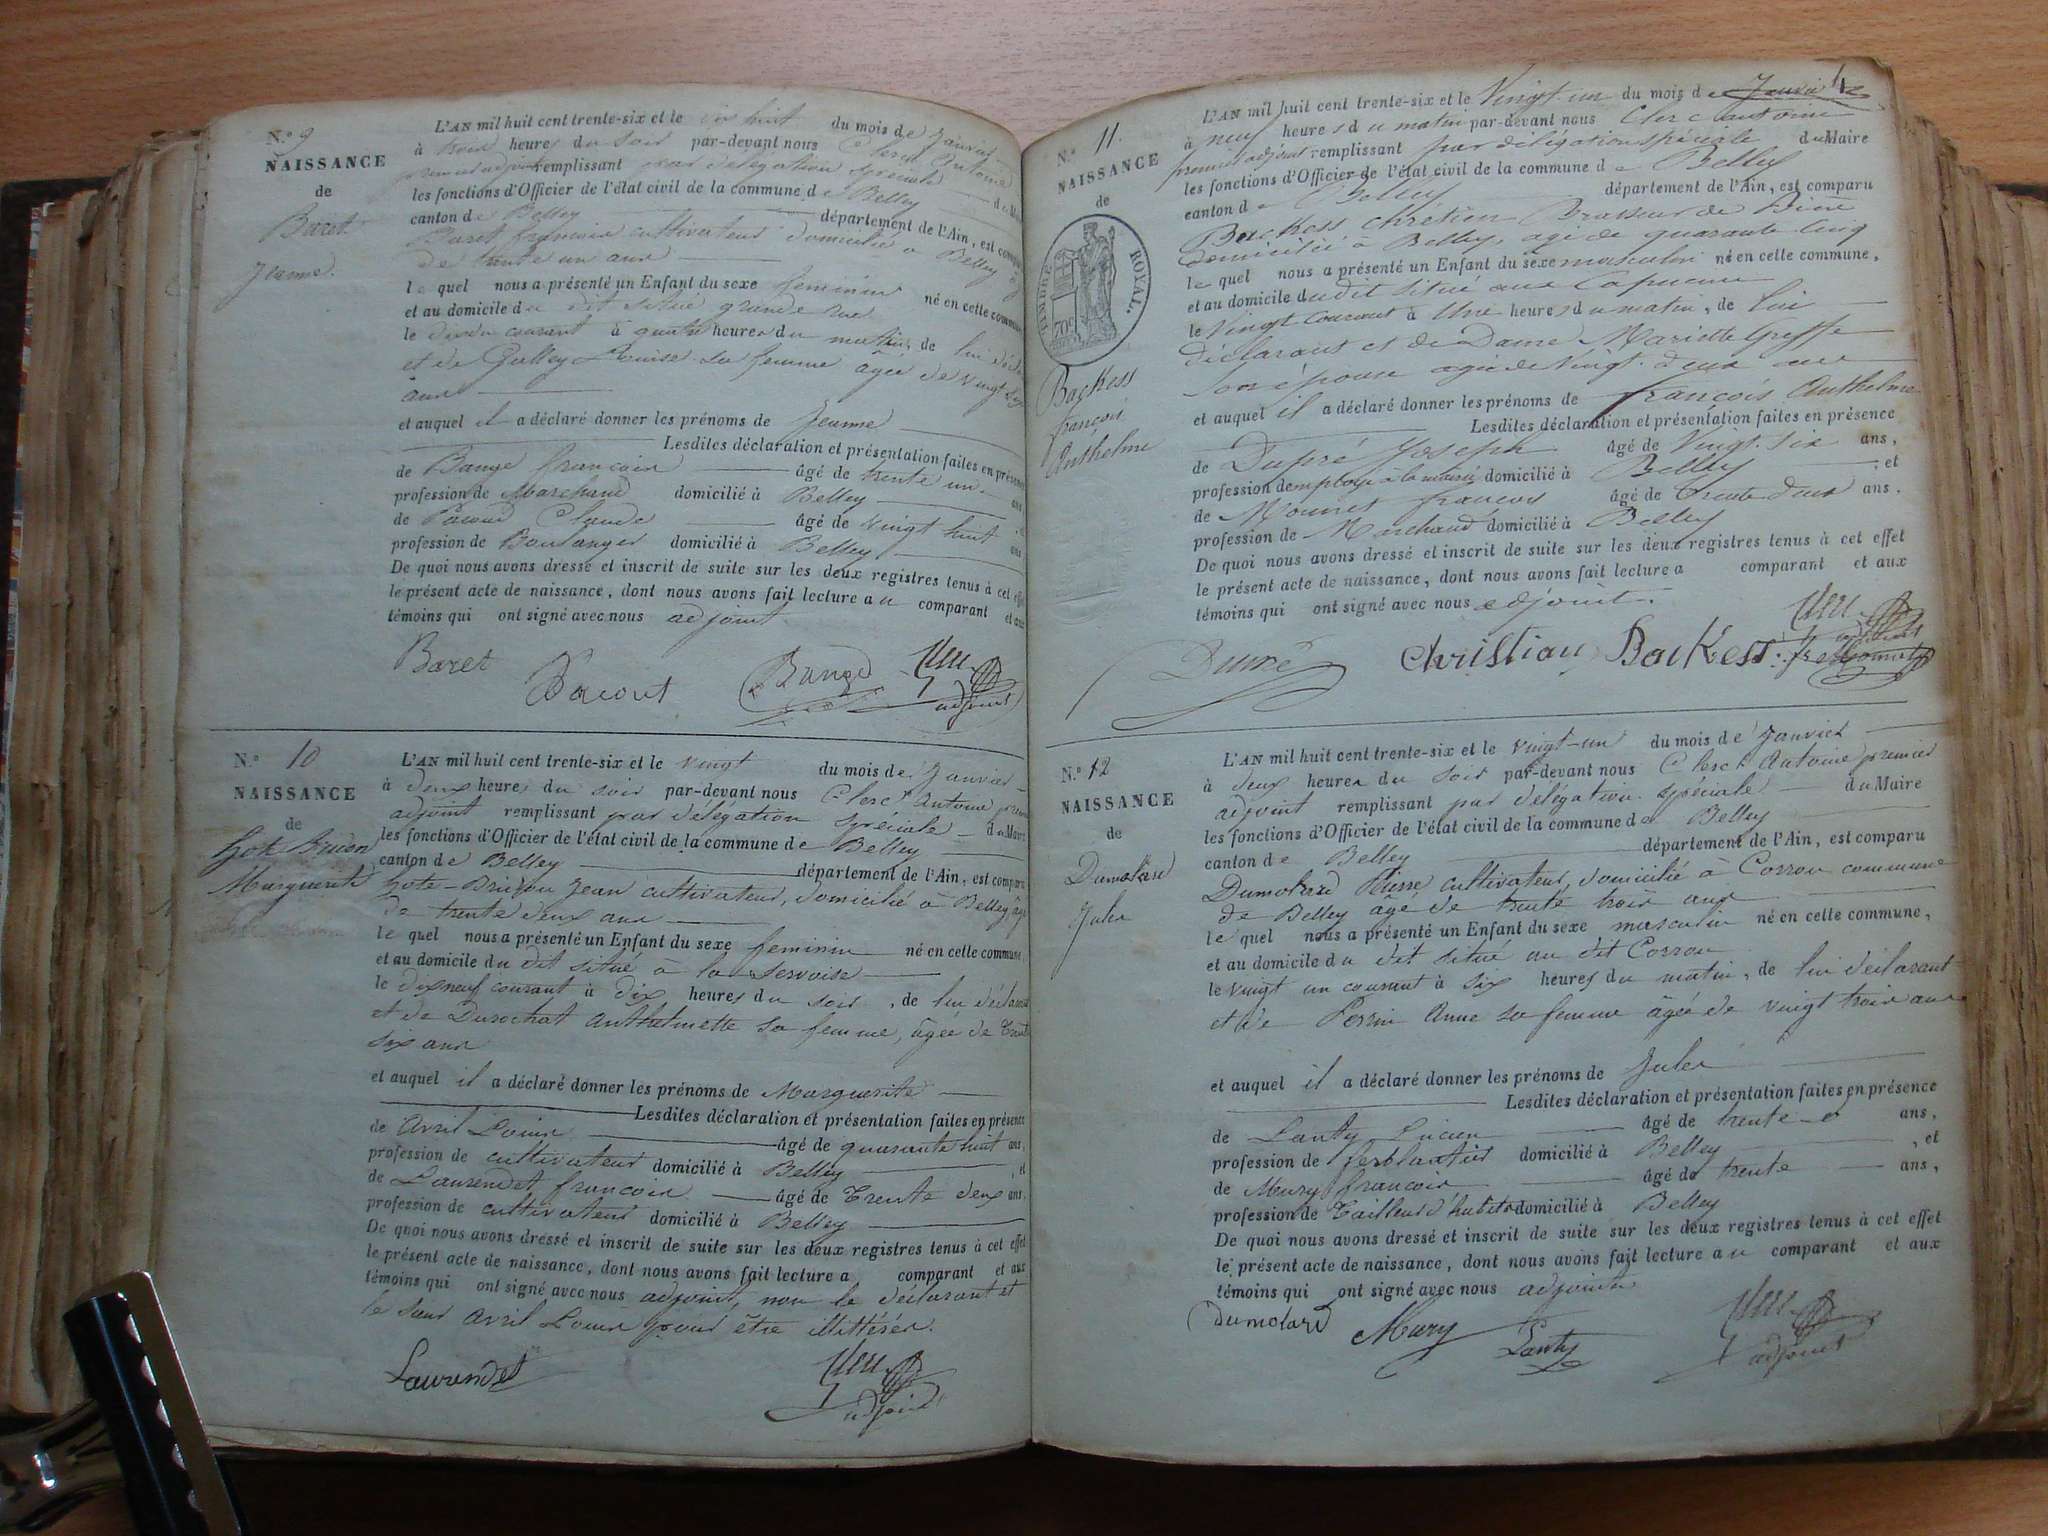 N.º 9
NAISSANCE
de
Baret
Jeanne.
L'AN mil huit cent trente-six et le dix huit du mois de Janvier
à trois heures du soir par-devant nous Clerc Antoine
premier adjoint remplissant par délégation spéciale du Maire
les fonctions d'Officier de l'état civil de la commune de Belley
canton de Belley département de l'Ain, est comparu
Baret francois cultivateur domicilié à Belley
de trente un ans
le quel nous a présenté un Enfant du sexe feminin né en cette commune
et au domicile du dit situé grande rue
le dixhuit courant à quatre heures du matin, de lui
et de Louise sa femme âgée de vingt six
ans
et auquel il a déclaré donner les prénoms de Jeanne
Lesdites déclaration et présentation faites en présence
de Bange francois âgé de trente un ans
profession de Marchand domicilié à Belley
de Claude âgé de vingt huit ans
profession de Boulanger domicilié à Belley
De quoi nous avons dressé et inscrit de suite sur les deux registres tenus à cet effet
le présent acte de naissance, dont nous avons fait lecture au comparant et aux
témoins qui ont signé avec nous adjoint.
Baret
Bange
adjoint
N.º 10
NAISSANCE
de
Marguerite
L'AN mil huit cent trente-six et le vingt du mois de Janvier
à deux heures du soir par-devant nous Clerc Antoine premier
adjoint remplissant par délégation spéciale du Maire
les fonctions d'Officier de l'état civil de la commune de Belley
canton de Belley département de l'Ain, est comparu
Jean cultivateur, domicilié à Belley âgé
de trente deux ans
le quel nous a présenté un Enfant du sexe feminin né en cette commune
et au domicile du dit situé à la
le dixneuf courant à dix heures du soir, de lui déclarant
et de Durochat Anthelmette sa femme, âgée de trente
six ans
et auquel il a déclaré donner les prénoms de Marguerite
Lesdites déclaration et présentation faites en présence
de Avril Louis âgé de quarante huit ans,
profession de cultivateur domicilié à Belley, et
de Laurendet francois âgé de trente deux ans,
profession de cultivateur domicilié à Belley
De quoi nous avons dressé et inscrit de suite sur les deux registres tenus à cet effet
le présent acte de naissance, dont nous avons fait lecture a comparant et aux
témoins qui ont signé avec nous adjoint, non le déclarant et
le sieur Avril Louis pour être illitérés.
Laurendet
adjoint
4
N.º 11.
NAISSANCE
de
TIMBRE ROYAL.
70c
Backess
françois
Anthelme
L'AN mil huit cent trente-six et le Vingt-un du mois de Janvier
à neuf heures du matin par-devant nous Clerc Antoine
premier adjoint remplissant par délégation spéciale du Maire
les fonctions d'Officier de l'état civil de la commune de Belley
canton de Belley département de l'Ain, est comparu
Backess Chrétien Brasseur de Bière
domicilié à Belley, agé de quarante cinq
le quel nous a présenté un Enfant du sexe masculin né en cette commune,
et au domicile dudit situé aux Capucins
le Vingt Courant à Une heures du matin, de lui
déclarant et de Dame Mariette Greffe
son épouse agée de Vingt-deux ans
et auquel il a déclaré donner les prénoms de françois Anthelme
Lesdites déclaration et présentation faites en présence
de Dupré Joseph âgé de Vingt-six ans,
profession de employé à la mairie domicilié à Belley, et
de Monnet françois âgé de trente deux ans.
profession de Marchand domicilié à Belley
De quoi nous avons dressé et inscrit de suite sur les deux registres tenus à cet effet
le présent acte de naissance, dont nous avons fait lecture a comparant et aux
témoins qui ont signé avec nous adjoint.
Dupré
Christian Backess
adjoint
N.º 12
NAISSANCE
de
Dumolard
Jules
L'AN mil huit cent trente-six et le vingt-un du mois de Janvier
à deux heures du soir par-devant nous Clerc Antoine premier
adjoint remplissant par délégation spéciale du Maire
les fonctions d'Officier de l'état civil de la commune de Belley
canton de Belley département de l'Ain, est comparu
Dumolard Pierre cultivateur, domicilié à Corron commune
de Belley âgé de trente trois ans
le quel nous a présenté un Enfant du sexe masculin né en cette commune,
et au domicile du dit situé au dit Corron
le vingt un courant à six heures du matin, de lui déclarant
et de Perrin Anne sa femme âgée de vingt trois ans
et auquel il a déclaré donner les prénoms de Jules
Lesdites déclaration et présentation faites en présence
de Lanty Lucien âgé de trente ans,
profession de ferblantier domicilié à Belley, et
de Mury francois âgé de trente ans,
profession de Tailleur d'habits domicilié à Belley
De quoi nous avons dressé et inscrit de suite sur les deux registres tenus à cet effet
le présent acte de naissance, dont nous avons fait lecture au comparant et aux
témoins qui ont signé avec nous adjoint
Dumolard
Mury
Lanty
adjoint